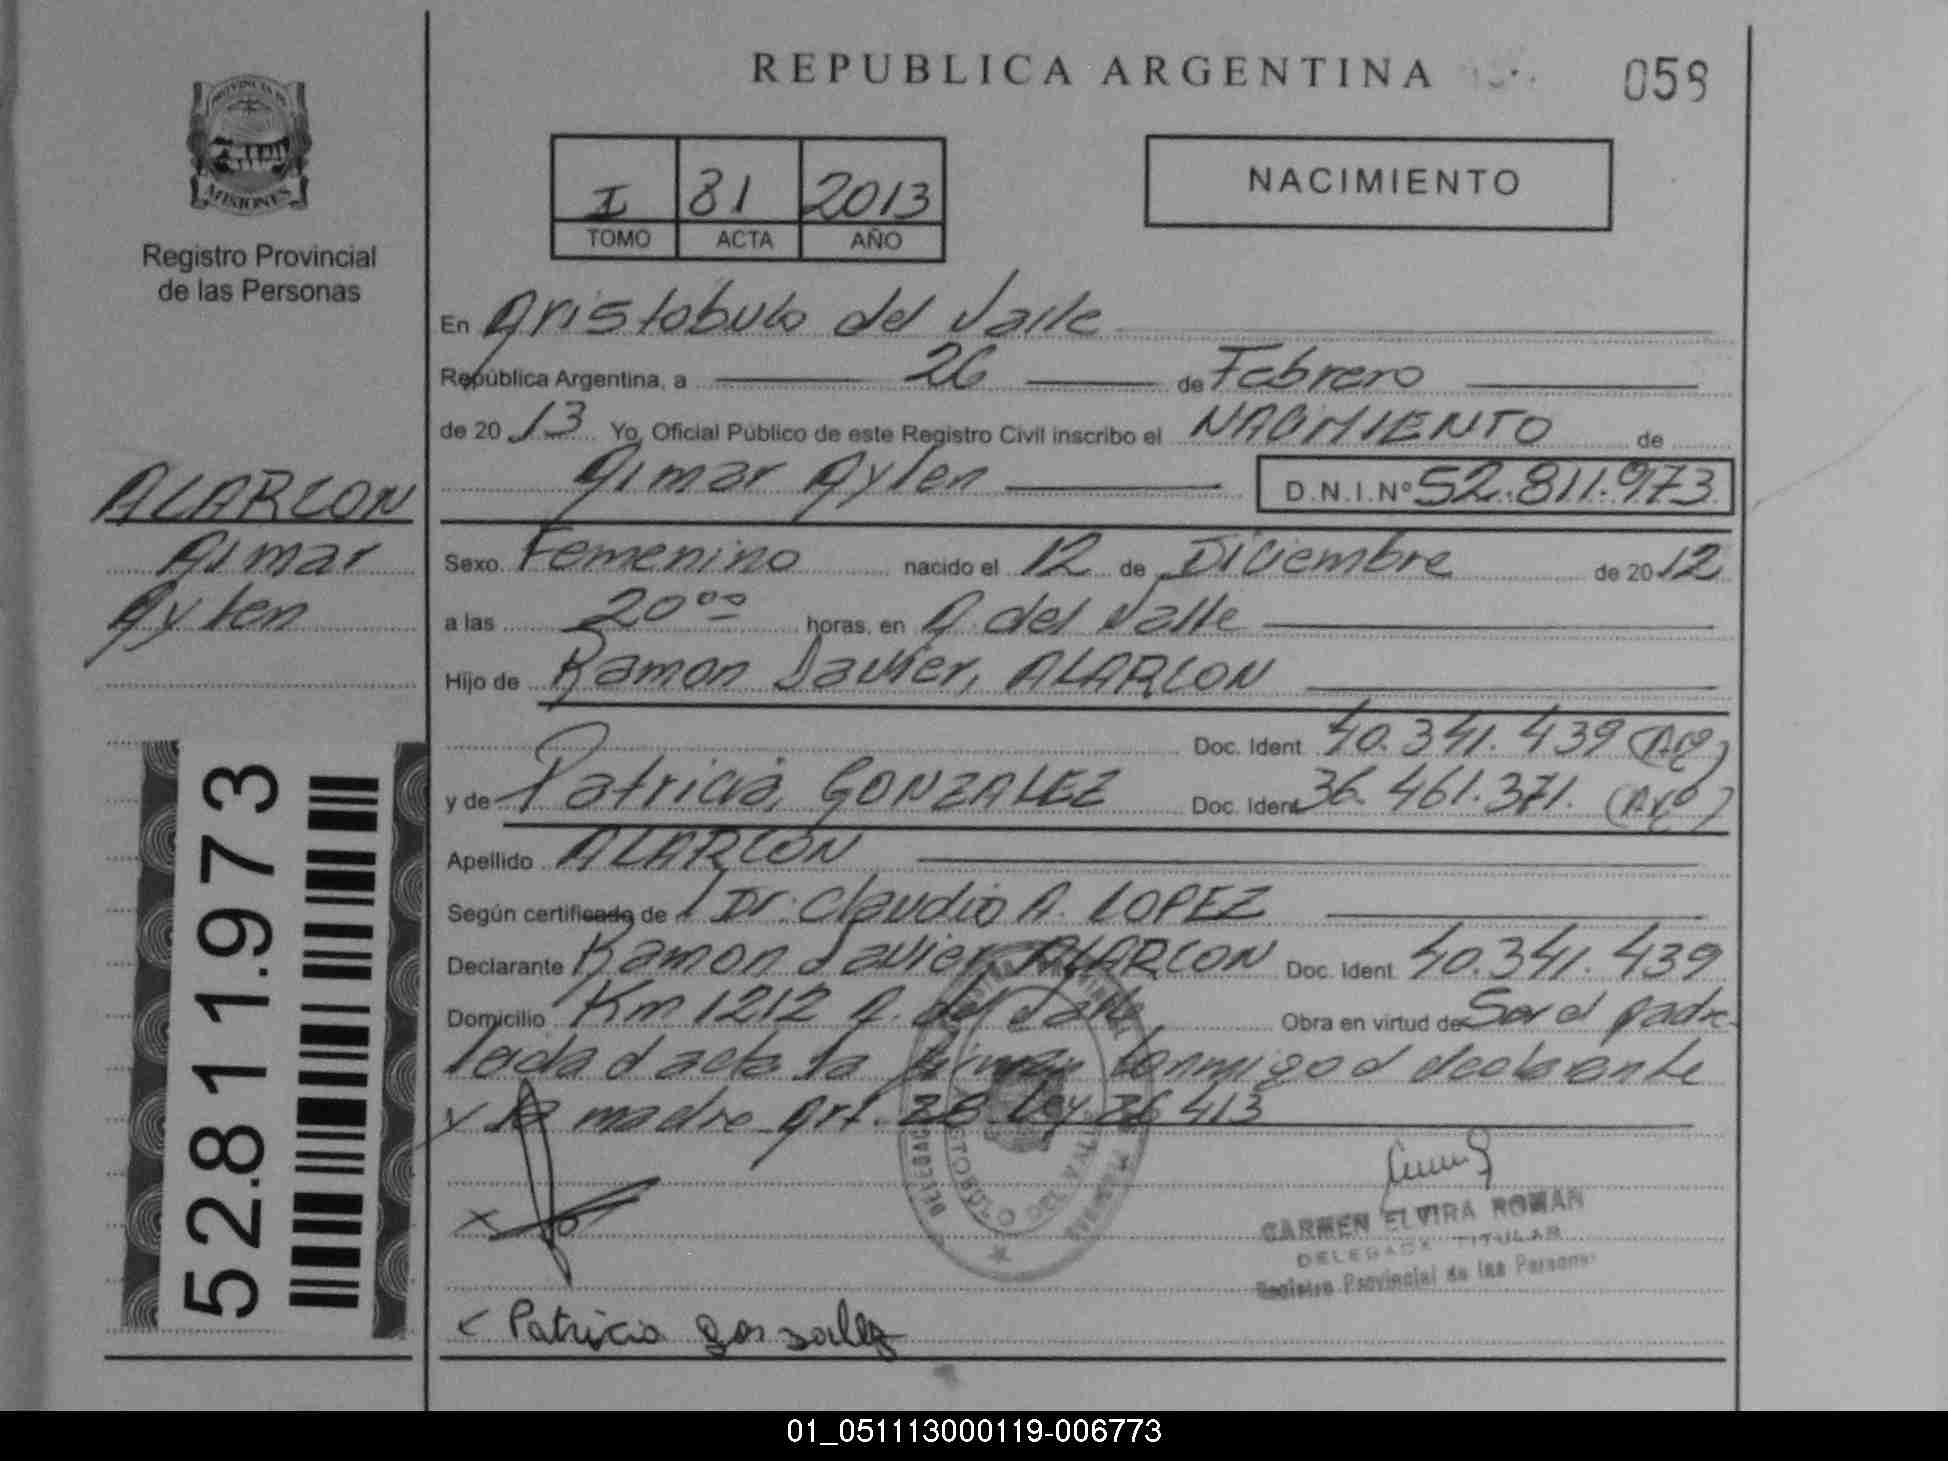 REPUBLICA ARGENTINA
058
PROVINCIA DE
MISIONES
Registro Provincial
de las Personas
I 81 2013
TOMO ACTA AÑO
NACIMIENTO
En Aristobulo del Valle
República Argentina, a 26 de Febrero
de 20 13 Yo, Oficial Público de este Registro Civil inscribo el NACIMIENTO de
Aimar Aylen D.N.I.Nº 52.811.973
ALARCON
Aimar
Aylen
Sexo Femenino nacido el 12 de Diciembre de 20 12
a las 20°° horas, en A. del Valle
Hijo de Ramon Javier, ALARCON
Doc. Ident. 40.341.439 (Arg)
y de Patricia, GONZALEZ Doc. Ident. 36.461.371. (Arg)
Apellido ALARCON
Según certificado de Dr. Claudio A. LOPEZ
Declarante Ramon Javier ALARCON Doc. Ident. 40.341.439
Domicilio Km 1212 A. del Valle Obra en virtud de Ser el padre
leida el acta la firman conmigo el declarante
y la madre Art. 28 Ley 26413
52.811.973
DEL VALLE
CARMEN ELVIRA ROMAN
DELEGADA TITULAR
Registro Provincial de las Personas
x
Patricia gonzalez
01_051113000119-006773